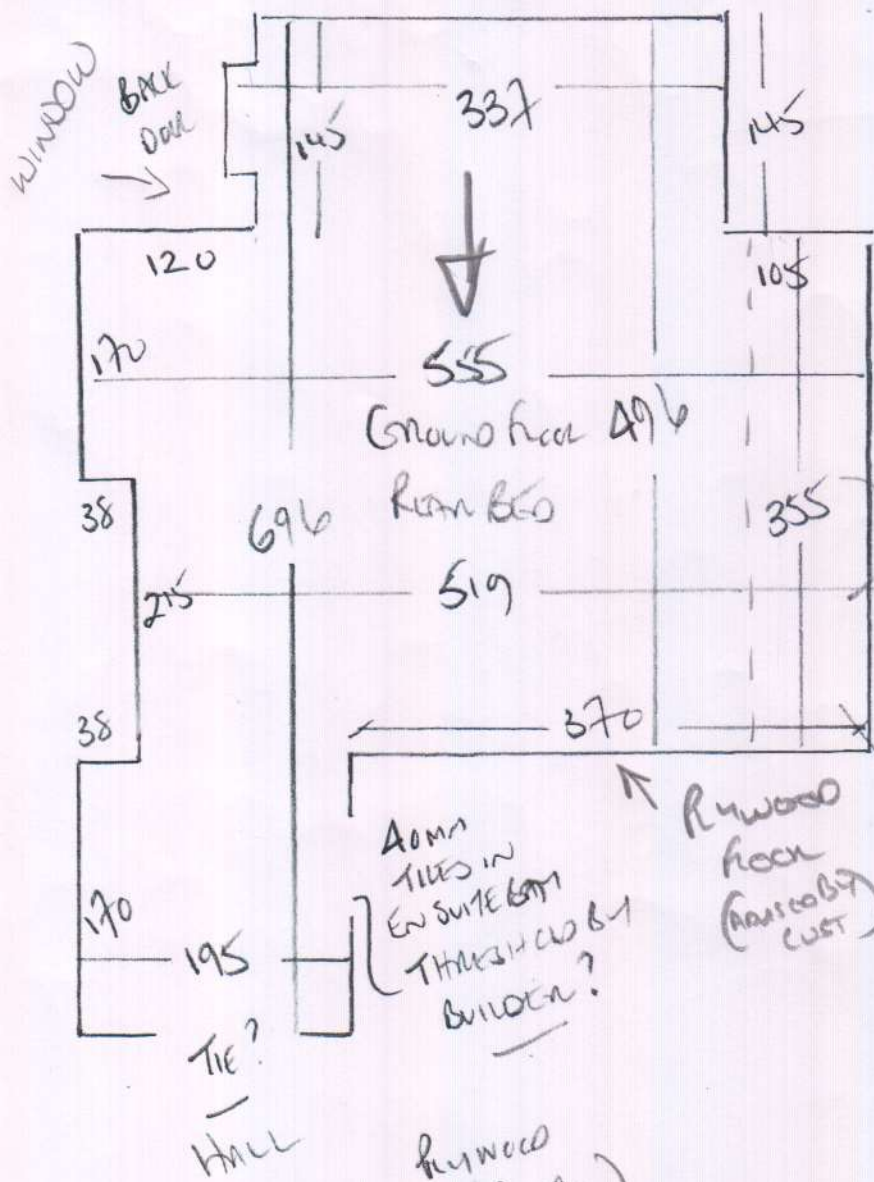 WINDOW
BACK
DOOR
337
145
145
120
105
170
555
GROUND FLOOR
496
REAR BED
38
696
355
215
519
38
370
PLYWOOD
FLOOR
CUST
40MM
TILES IN
ENSUITE
THRESHOLD BY
BUILDER?
170
195
TIE?
HALL
PLYWOOD